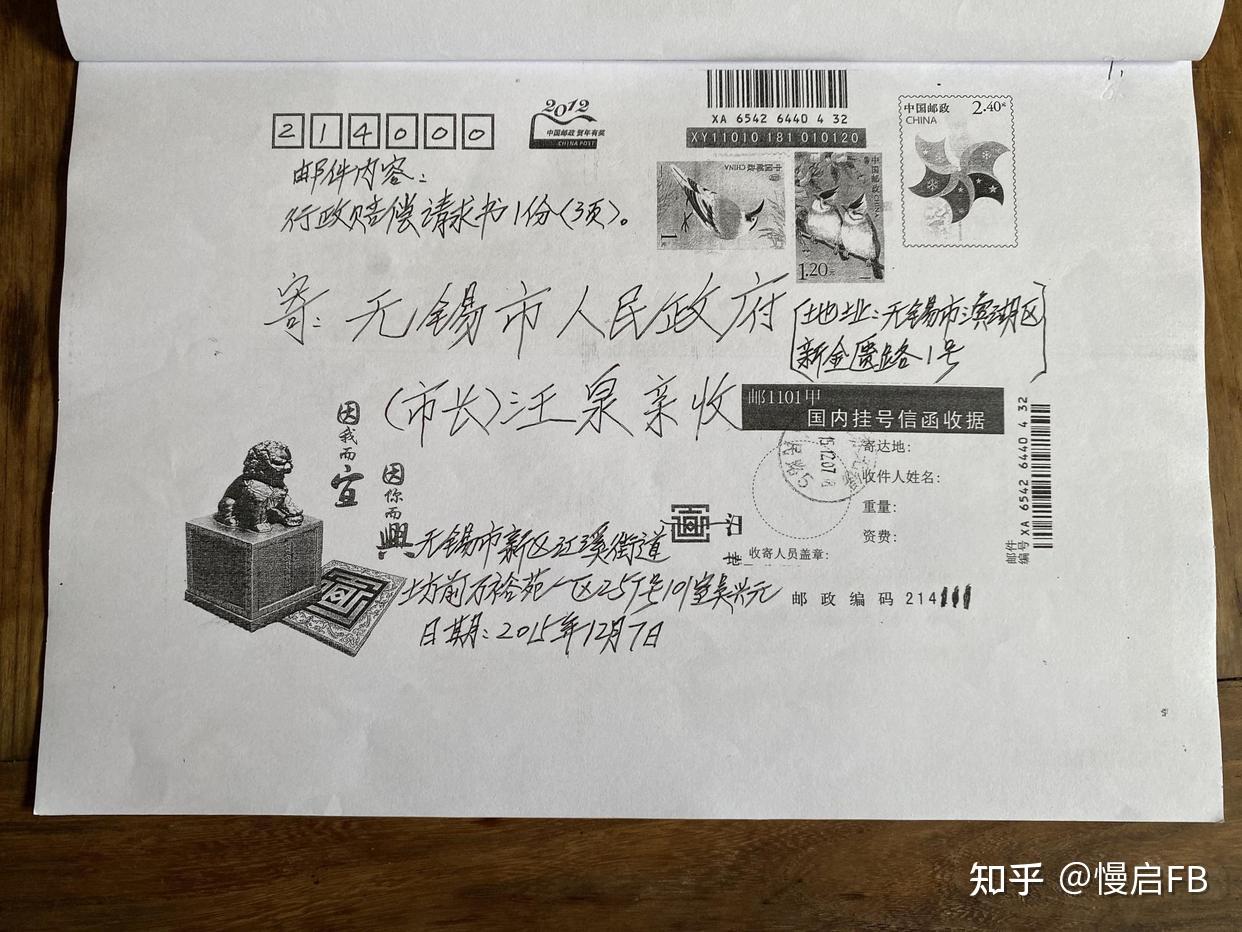 214000
2012
中国邮政 贺年有奖
CHINA POST
XA 6542 6440 4 32
XY11010 181 010120
中国邮政
CHINA
2.40元
中国邮政 CHINA
1元
中国邮政 CHINA
1.20元
邮件内容:
行政赔偿请求书1份(3页)。
寄:无锡市人民政府
[地址:无锡市滨湖区
新金匮路1号]
(市长)汪泉亲收
邮1101甲
国内挂号信函收据
寄达地:
收件人姓名:
重量:
资费:
收寄人员盖章:
邮件
编号 XA 6542 6440 4 32
因我而宜
因你而興
无锡市新区江溪街道
坊前万裕苑一区257号101室吴兴元
邮政编码 214
日期:2015年12月7日
知乎 @慢启FB